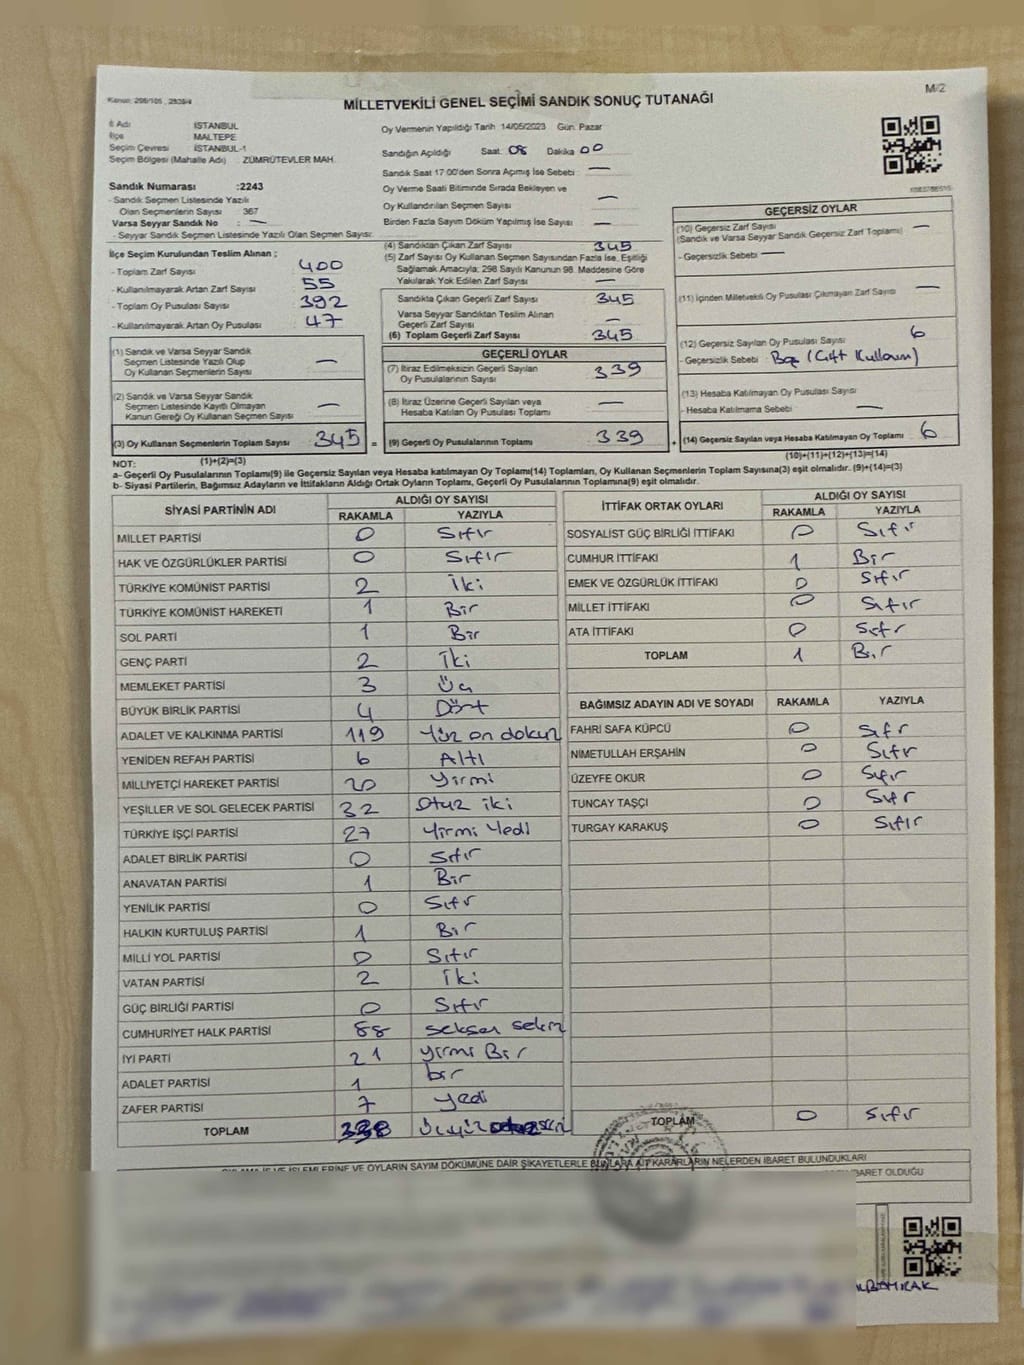 Kanun: 298/105 , 2839/4
M/2
MİLLETVEKİLİ GENEL SEÇİMİ SANDIK SONUÇ TUTANAĞI
İl Adı İSTANBUL
İlçe MALTEPE
Seçim Çevresi İSTANBUL-1
Seçim Bölgesi (Mahalle Adı) : ZÜMRÜTEVLER MAH.
Sandık Numarası :2243
- Sandık Seçmen Listesinde Yazılı
Olan Seçmenlerin Sayısı 367
Varsa Seyyar Sandık No : —
- Seyyar Sandık Seçmen Listesinde Yazılı Olan Seçmen Sayısı:
İlçe Seçim Kurulundan Teslim Alınan ;
- Toplam Zarf Sayısı : 400
- Kullanılmayarak Artan Zarf Sayısı : 55
- Toplam Oy Pusulası Sayısı : 392
- Kullanılmayarak Artan Oy Pusulası : 47
(1) Sandık ve Varsa Seyyar Sandık
Seçmen Listesinde Yazılı Olup
Oy Kullanan Seçmenlerin Sayısı : —
(2) Sandık ve Varsa Seyyar Sandık
Seçmen Listesinde Kayıtlı Olmayan
Kanun Gereği Oy Kullanan Seçmen Sayısı : —
(3) Oy Kullanan Seçmenlerin Toplam Sayısı : 345 =
(1)+(2)=(3)
Oy Vermenin Yapıldığı Tarih 14/05/2023 Gün. Pazar
Sandığın Açıldığı Saat: 08 Dakika 00
Sandık Saat 17:00'den Sonra Açılmış İse Sebebi : —
Oy Verme Saati Bitiminde Sırada Bekleyen ve
Oy Kullandırılan Seçmen Sayısı : —
Birden Fazla Sayım Döküm Yapılmış İse Sayısı : —
(4) Sandıktan Çıkan Zarf Sayısı : 345
(5) Zarf Sayısı Oy Kullanan Seçmen Sayısından Fazla İse, Eşitliği
Sağlamak Amacıyla, 298 Sayılı Kanunun 98. Maddesine Göre
Yakılarak Yok Edilen Zarf Sayısı : —
Sandıkta Çıkan Geçerli Zarf Sayısı : 345
Varsa Seyyar Sandıktan Teslim Alınan
Geçerli Zarf Sayısı : —
(6) Toplam Geçerli Zarf Sayısı : 345
GEÇERLİ OYLAR
(7) İtiraz Edilmeksizin Geçerli Sayılan
Oy Pusulalarının Sayısı : 339
(8) İtiraz Üzerine Geçerli Sayılan veya
Hesaba Katılan Oy Pusulası Toplamı : —
(9) Geçerli Oy Pusulalarının Toplamı : 339 +
GEÇERSİZ OYLAR
(10) Geçersiz Zarf Sayısı
(Sandık ve Varsa Seyyar Sandık Geçersiz Zarf Toplamı) : —
- Geçersizlik Sebebi : —
(11) İçinden Milletvekili Oy Pusulası Çıkmayan Zarf Sayısı : —
(12) Geçersiz Sayılan Oy Pusulası Sayısı : 6
- Geçersizlik Sebebi : (Çift Kullanım)
(13) Hesaba Katılmayan Oy Pusulası Sayısı
- Hesaba Katılmama Sebebi : —
(14) Geçersiz Sayılan veya Hesaba Katılmayan Oy Toplamı : 6
(10)+(11)+(12)+(13)=(14)
NOT:
a- Geçerli Oy Pusulalarının Toplamı(9) ile Geçersiz Sayılan veya Hesaba katılmayan Oy Toplamı(14) Toplamları, Oy Kullanan Seçmenlerin Toplam Sayısına(3) eşit olmalıdır. (9)+(14)=(3)
b- Siyasi Partilerin, Bağımsız Adayların ve İttifakların Aldığı Ortak Oyların Toplamı, Geçerli Oy Pusulalarının Toplamına(9) eşit olmalıdır.
SİYASİ PARTİNİN ADI ALDIĞI OY SAYISI
RAKAMLA YAZIYLA
MİLLET PARTİSİ 0 Sıfır
HAK VE ÖZGÜRLÜKLER PARTİSİ 0 Sıfır
TÜRKİYE KOMÜNİST PARTİSİ 2 İki
TÜRKİYE KOMÜNİST HAREKETİ 1 Bir
SOL PARTİ 1 Bir
GENÇ PARTİ 2 İki
MEMLEKET PARTİSİ 3 Üç
BÜYÜK BİRLİK PARTİSİ 4 Dört
ADALET VE KALKINMA PARTİSİ 119 Yüz on dokuz
YENİDEN REFAH PARTİSİ 6 Altı
MİLLİYETÇİ HAREKET PARTİSİ 20 Yirmi
YEŞİLLER VE SOL GELECEK PARTİSİ 32 Otuz iki
TÜRKİYE İŞÇİ PARTİSİ 27 Yirmi Yedi
ADALET BİRLİK PARTİSİ 0 Sıfır
ANAVATAN PARTİSİ 1 Bir
YENİLİK PARTİSİ 0 Sıfır
HALKIN KURTULUŞ PARTİSİ 1 Bir
MİLLİ YOL PARTİSİ 0 Sıfır
VATAN PARTİSİ 2 İki
GÜÇ BİRLİĞİ PARTİSİ 0 Sıfır
CUMHURİYET HALK PARTİSİ 88 Seksen sekiz
İYİ PARTİ 21 Yirmi Bir
ADALET PARTİSİ 1 bir
ZAFER PARTİSİ 7 Yedi
TOPLAM 338 Üçyüz
İTTİFAK ORTAK OYLARI ALDIĞI OY SAYISI
RAKAMLA YAZIYLA
SOSYALİST GÜÇ BİRLİĞİ İTTİFAKI 0 Sıfır
CUMHUR İTTİFAKI 1 Bir
EMEK VE ÖZGÜRLÜK İTTİFAKI 0 Sıfır
MİLLET İTTİFAKI 0 Sıfır
ATA İTTİFAKI 0 Sıfır
TOPLAM 1 Bir
BAĞIMSIZ ADAYIN ADI VE SOYADI RAKAMLA YAZIYLA
FAHRİ SAFA KÜPCÜ 0 Sıfır
NİMETULLAH ERŞAHİN 0 Sıfır
ÜZEYFE OKUR 0 Sıfır
TUNCAY TAŞÇI 0 Sıfır
TURGAY KARAKUŞ 0 Sıfır
TOPLAM 0 Sıfır
OYLAMA İŞ VE İŞLEMLERİNE VE OYLARIN SAYIM DÖKÜMÜNE DAİR ŞİKAYETLERLE BUNLARA AİT KARARLARIN NELERDEN İBARET BULUNDUKLARI
İBARET OLDUĞU